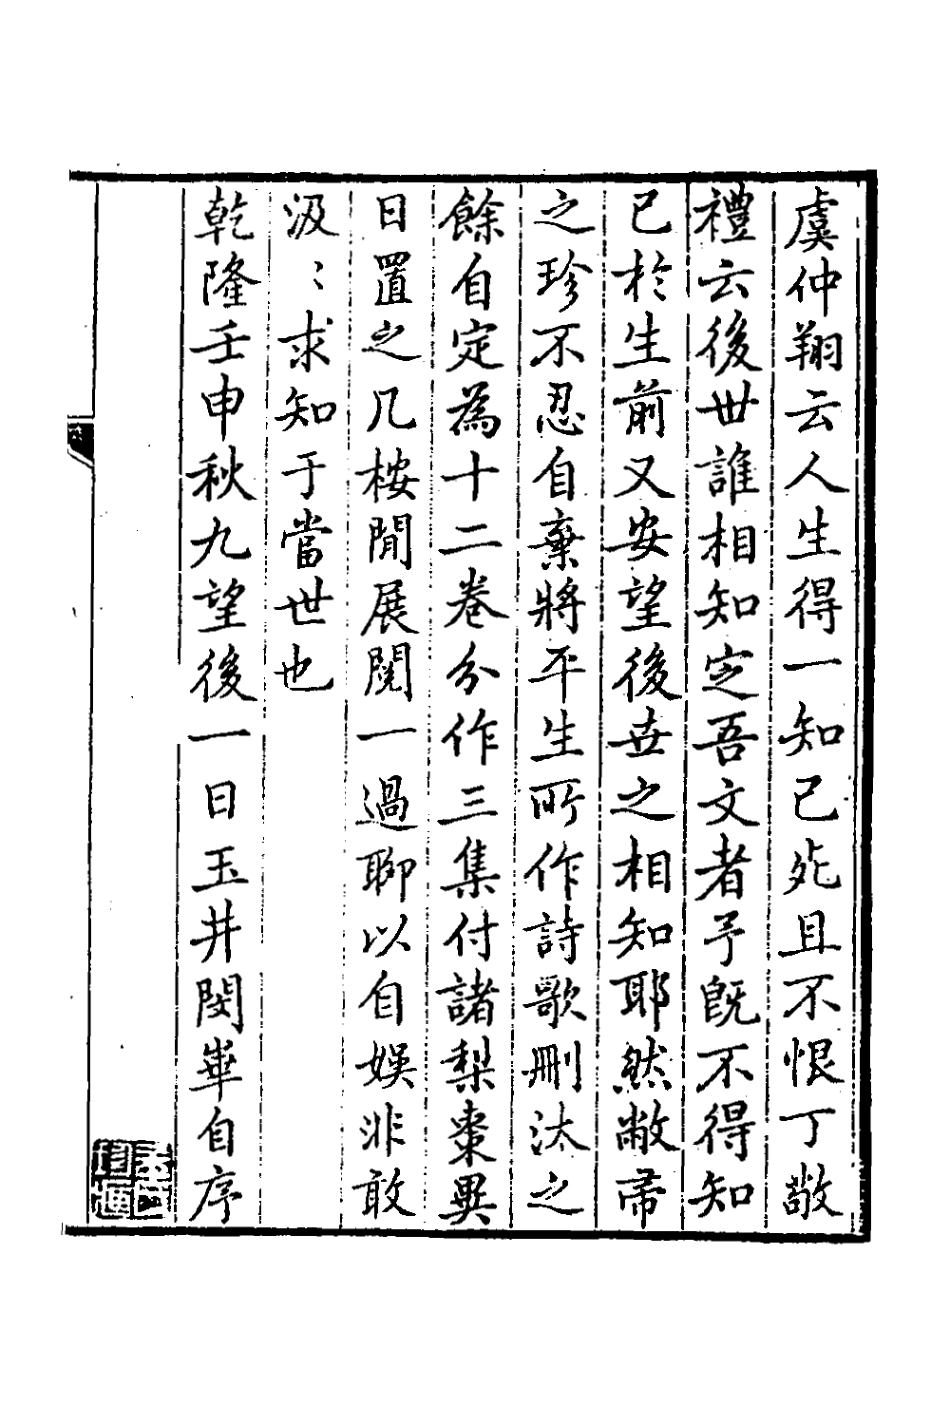 虞仲翔云人生得一知己死且不恨丁敬
禮云後世誰相知定吾文者予既不得知
已於生前又安望後世之相知耶然敝帚
之珍不忍自棄將平生所作詩歌刪汰之
餘自定為十二卷分作三集付諸梨棗異
日置之几桉閒展閱一過聊以自娛非敢
汲〻求知于當世也
乾隆壬申秋九望後一日玉井閔崋自序